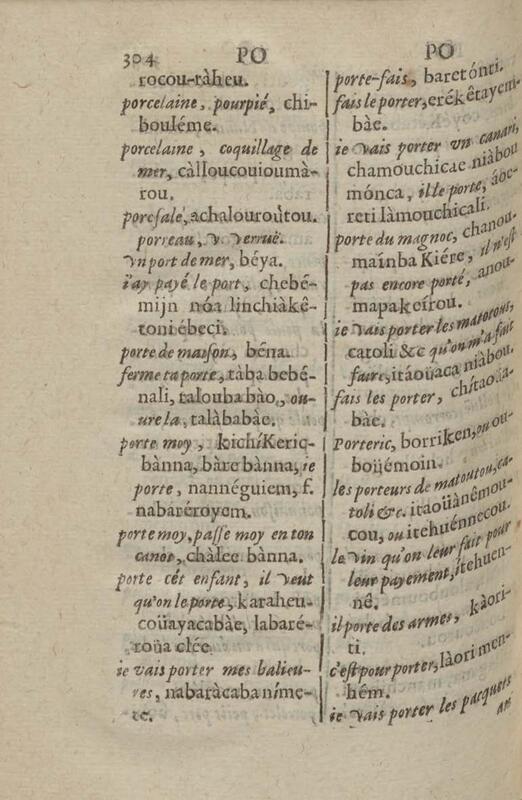 304 PO
rocou-ràheu.
porcelaine, pourpié, chi-
bouléme.
porcelaine, coquillage de
mer, càlloucouioumà-
rou.
porc salé, achalouroûtou.
porreau, v verruë.
vn port de mer, béya.
i'ay payé le port, chebé-
mijn nóa linchiàkê-
toni ébeci.
porte de maison, béna.
ferme ta porte, tàba bebé-
nali, talouba bào, ou-
ure la, talàbabàe.
porte moy, kichíKeric-
bànna, bàre bànna, ie
porte, nannéguiem, f.
nabaréroyem.
porte moy, passe moy en ton
canot, chàlee bànna.
porte cét enfant, il veut
qu'on le porte, karaheu-
coüayacabàe, labaré-
roüa clée.
ie vais porter mes balieu-
res, nabaràcabaníme-
te.
PO
porte-fais, baretónti.
fais le porter, erékêtayem-
bàe.
ie vais porter vn canari,
chamouchicae niàbou
mónca, ille porte, áoe-
reti làmouchicali.
porte du magnoc, chanou-
maínba Kiére, il n'est
pas encore porté, anou-
mapakeírou.
ie vais porter les matotous,
catoli &c qu'on m'a fait
faire, itáoüaca niàbou.
fais les porter, chítaoüa-
bàe.
Porteric, borriken, ou ou-
boüémoin.
les porteurs de matoutou, ca-
toli &c. itaoüànêmou-
cou, ou itehuénnecou.
le vin qu'on leur fait pour
leur payement, itehuen-
nê.
il porte des armes, kàori-
ti.
c'est pour porter, làori men-
hém.
ie vais porter les pacquets